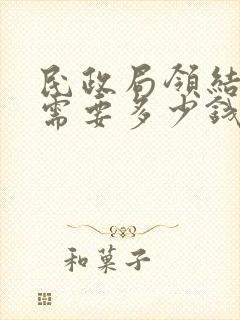 民政局領結
需要多少錢
和菓子